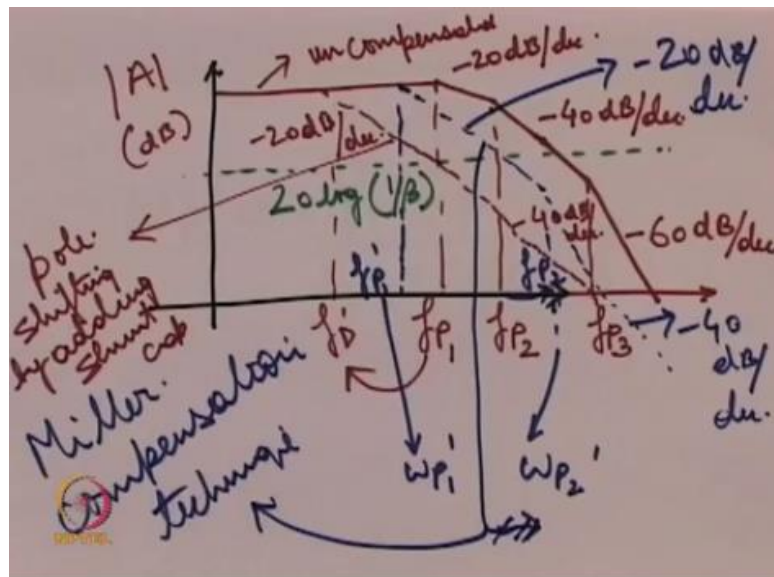 |A|
(dB)
uncompensated
-20dB/dec.
-20dB/
dec.
-40dB/dec.
-20dB/dec.
20 log (1/β)
-40dB/
dec.
-60dB/dec.
pole
shifting
by adding
shunt
cap
fD'
fP1'
fP1
fP2
fP2'
fP3
-40
dB/
dec.
Miller
compensation
technique
ωP1'
ωP2'
NPTEL